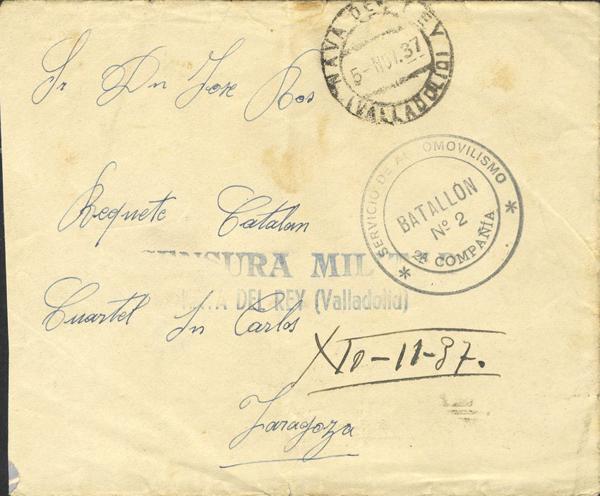 NAVA DEL REY
5-NOV.37
(VALLADOLID)
Sr Dn Jose Ros
SERVICIO DE AUTOMOVILISMO
BATALLON
Nº 2
2ª COMPAÑIA
Requete Catalan
CENSURA MILITAR
NAVA DEL REY (Valladolid)
Cuartel Sn Carlos
11-37.
Zaragoza